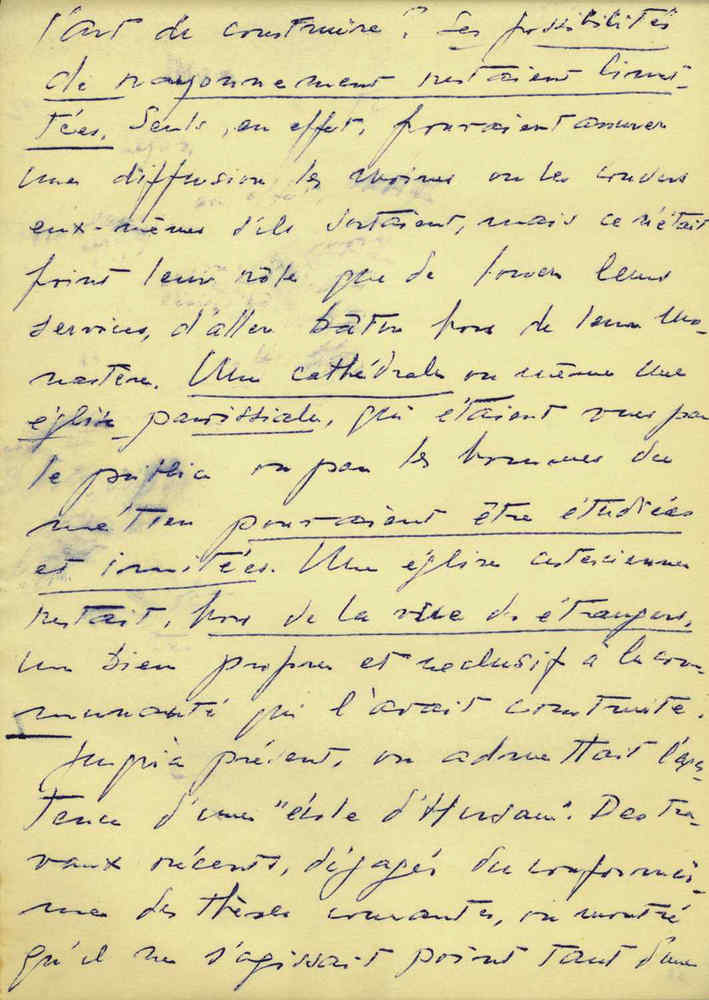 l'art de construire ? Les possibilités
de rayonnement restaient limi-
tées. Seuls, en effet, pouvaient assurer
une diffusion les moines ou les convers
eux-mêmes s'ils sortaient, mais ce n'était
point leur rôle que de louer leurs
services, d'aller bâtir hors de leur mo-
nastère. Une cathédrale ou même une
église paroissiale, qui étaient vues par
le public ou par les hommes du
métier pouvaient être étudiées
et imitées. Une église cistercienne
restait, hors de la vue des étrangers,
un bien propre et exclusif à la com-
munauté qui l'avait construite.
Jusqu'à présent, on admettait l'exis-
tence d'une "école d'Hirsau". Des tra-
vaux récents, dégagés du conformis-
me des thèses courantes, on montré
qu'il ne s'agissait point tant d'une